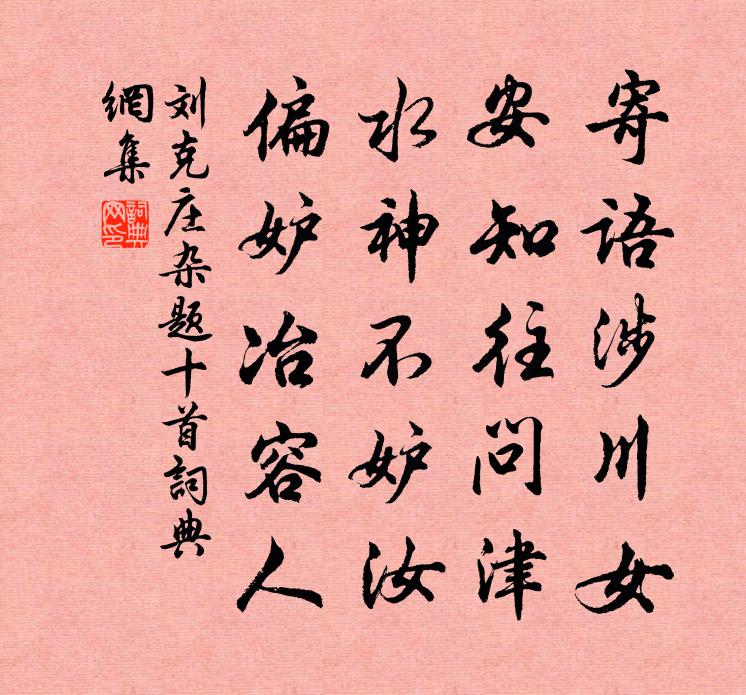 寄語涉川女
安知往問津
水神不妒汝
偏妒冶容人
刘克庄杂题十首詞典
網集
詞典
网印